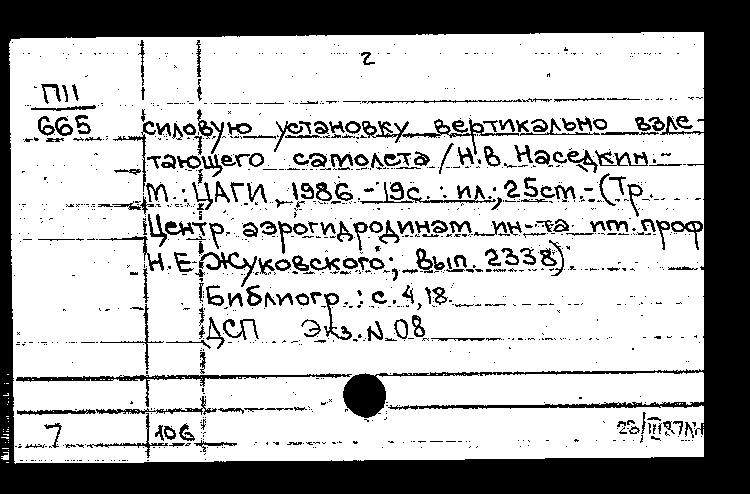 2
П11
665
силовую установку вертикально взле-
тающего самолета / Н.В. Наседкин.-
М.: ЦАГИ, 1986.-19с.: ил.; 25см.-(Тр.
Центр. аэрогидродинам. ин-та им. проф
Н.Е. Жуковского; Вып. 2338).
Библиогр.: с. 4,18.
ДСП Экз. N 08
7 106